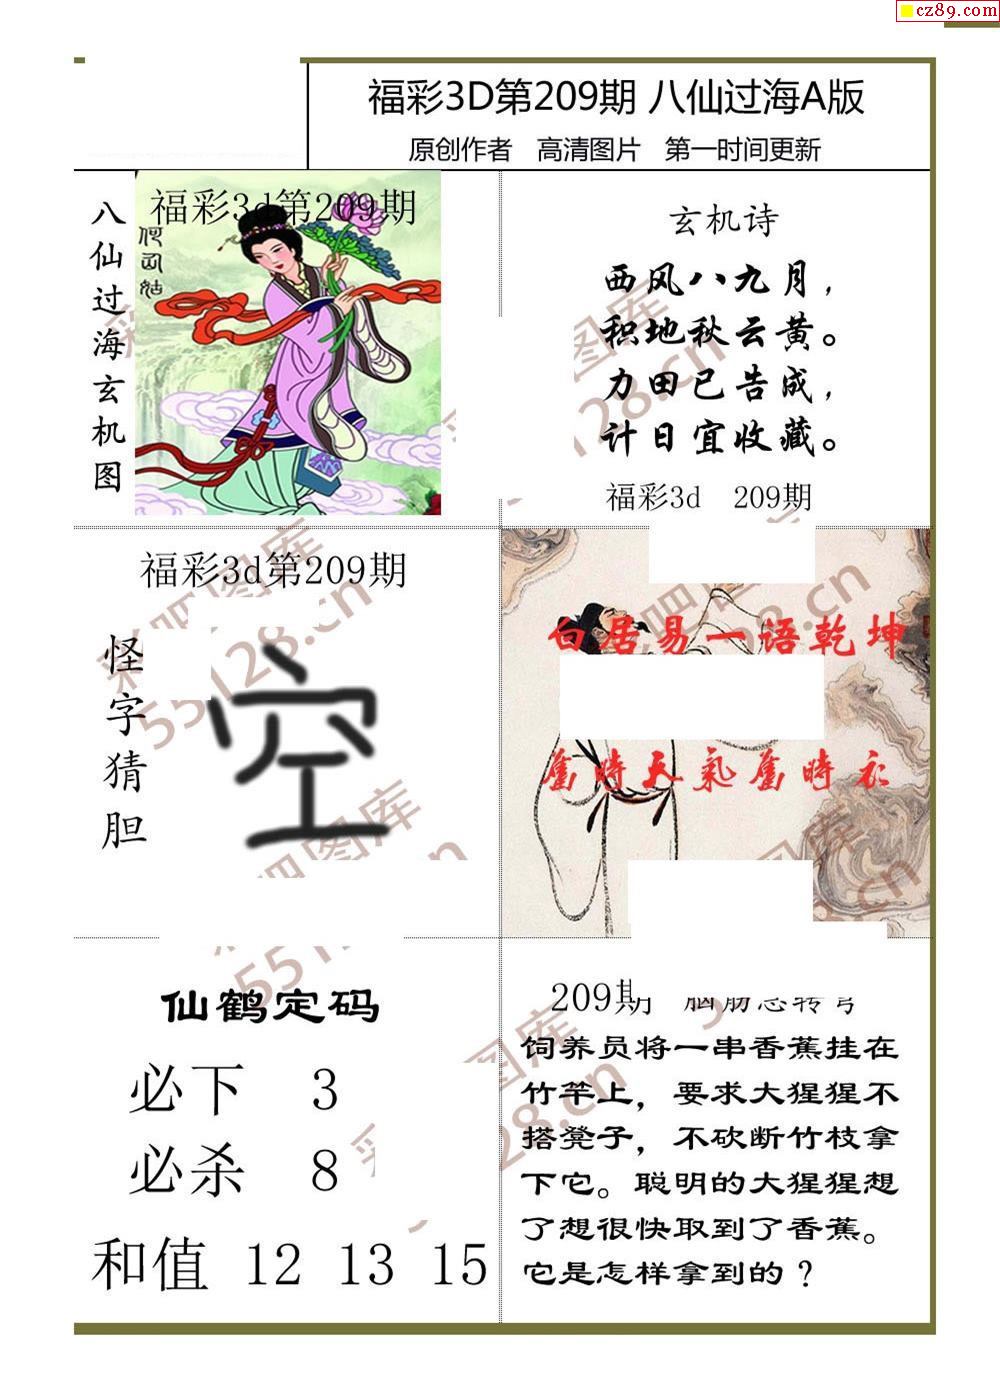 cz89.com
福彩3D第209期 八仙过海A版
原创作者 高清图片 第一时间更新
八仙过海玄机图
福彩3d第209期
何仙姑
玄机诗
西风八九月，
积地秋云黄。
力田已告成，
计日宜收藏。
福彩3d 209期
福彩3d第209期
怪字猜胆
空
白居易一语乾坤
舊時天氣舊時衣
仙鹤定码
必下 3
必杀 8
和值 12 13 15
209期 脑筋急转弯
饲养员将一串香蕉挂在
竹竿上，要求大猩猩不
搭凳子，不砍断竹枝拿
下它。聪明的大猩猩想
了想很快取到了香蕉。
它是怎样拿到的？
彩吧图库
55128.cn